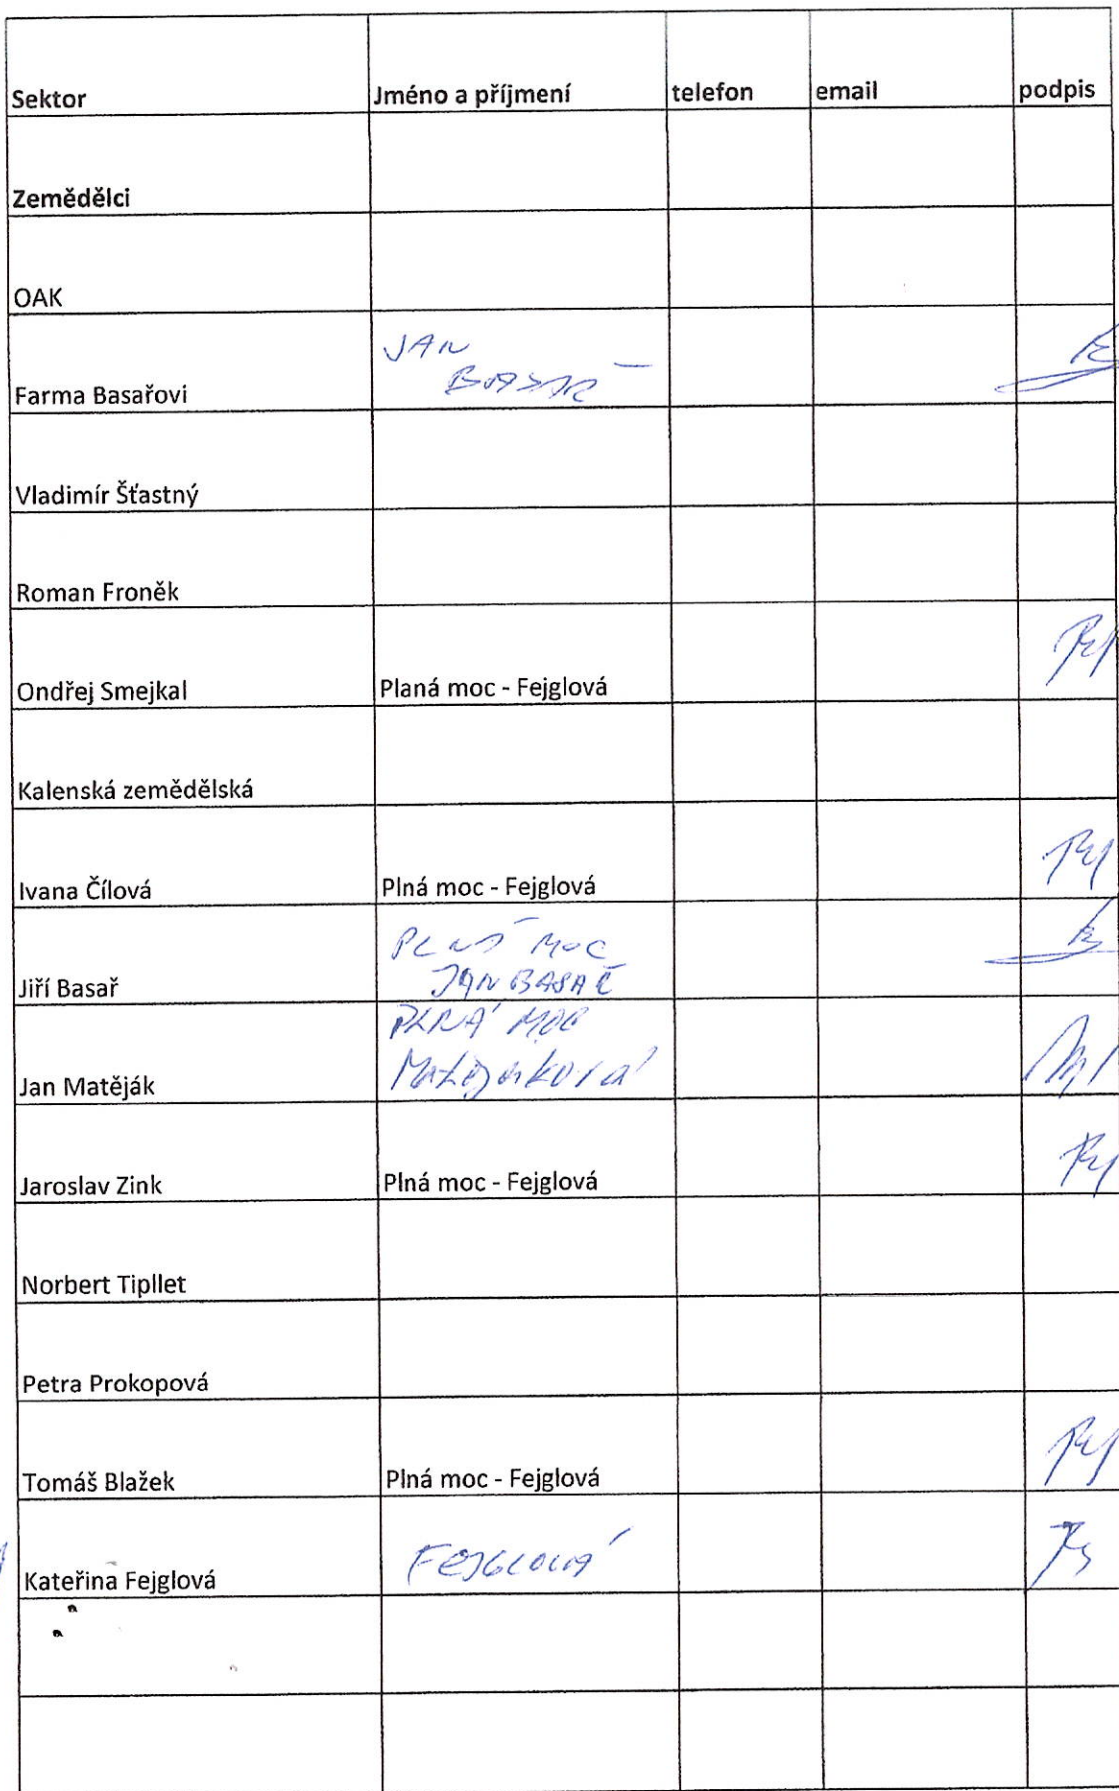 Sektor Jméno a příjmení telefon email podpis
Zemědělci
OAK
JAN
Farma Basařovi BASAŘ
Vladimír Šťastný
Roman Froněk
Ondřej Smejkal Planá moc - Fejglová
Kalenská zemědělská
Ivana Čílová Plná moc - Fejglová
PLNÁ MOC
Jiří Basař JAN BASAŘ
PLNÁ MOC
Jan Matěják Matějáková
Jaroslav Zink Plná moc - Fejglová
Norbert Tipllet
Petra Prokopová
Tomáš Blažek Plná moc - Fejglová
Kateřina Fejglová FEJGLOVÁ